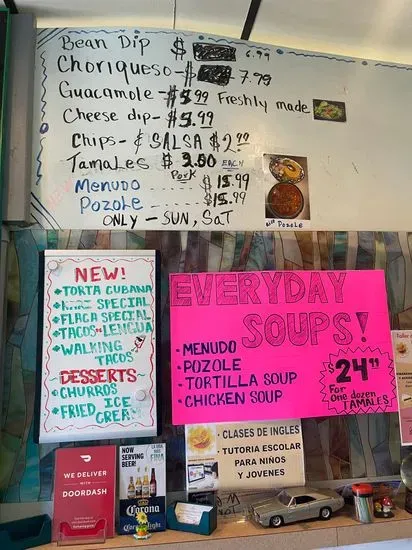 Bean Dip $ 6.99
Choriqueso - $ 7.99
Guacamole - $5.99 Freshly made
Cheese dip - $5.99
Chips - & SALSA $2.99
Tamales $3.00 EACH
Pork
NEW
Menudo ..... $15.99
Pozole ....... $15.99
ONLY - SUN, SaT
Pozole
NEW!
TORTA CUBANA
SPECIAL
FLACA SPECIAL
TACOS - LENGUA
WALKING
TACOS
DESSERTS
CHURROS
FRIED ICE
CREAM
EVERYDAY
SOUPS!
MENUDO
POZOLE
TORTILLA SOUP
CHICKEN SOUP
$24.99
For
one dozen
TAMALES
- CLASES DE INGLES
- TUTORIA ESCOLAR
PARA NIÑOS
Y JOVENES
WE DELIVER
WITH
DOORDASH
NOW
SERVING
BEER!
Corona